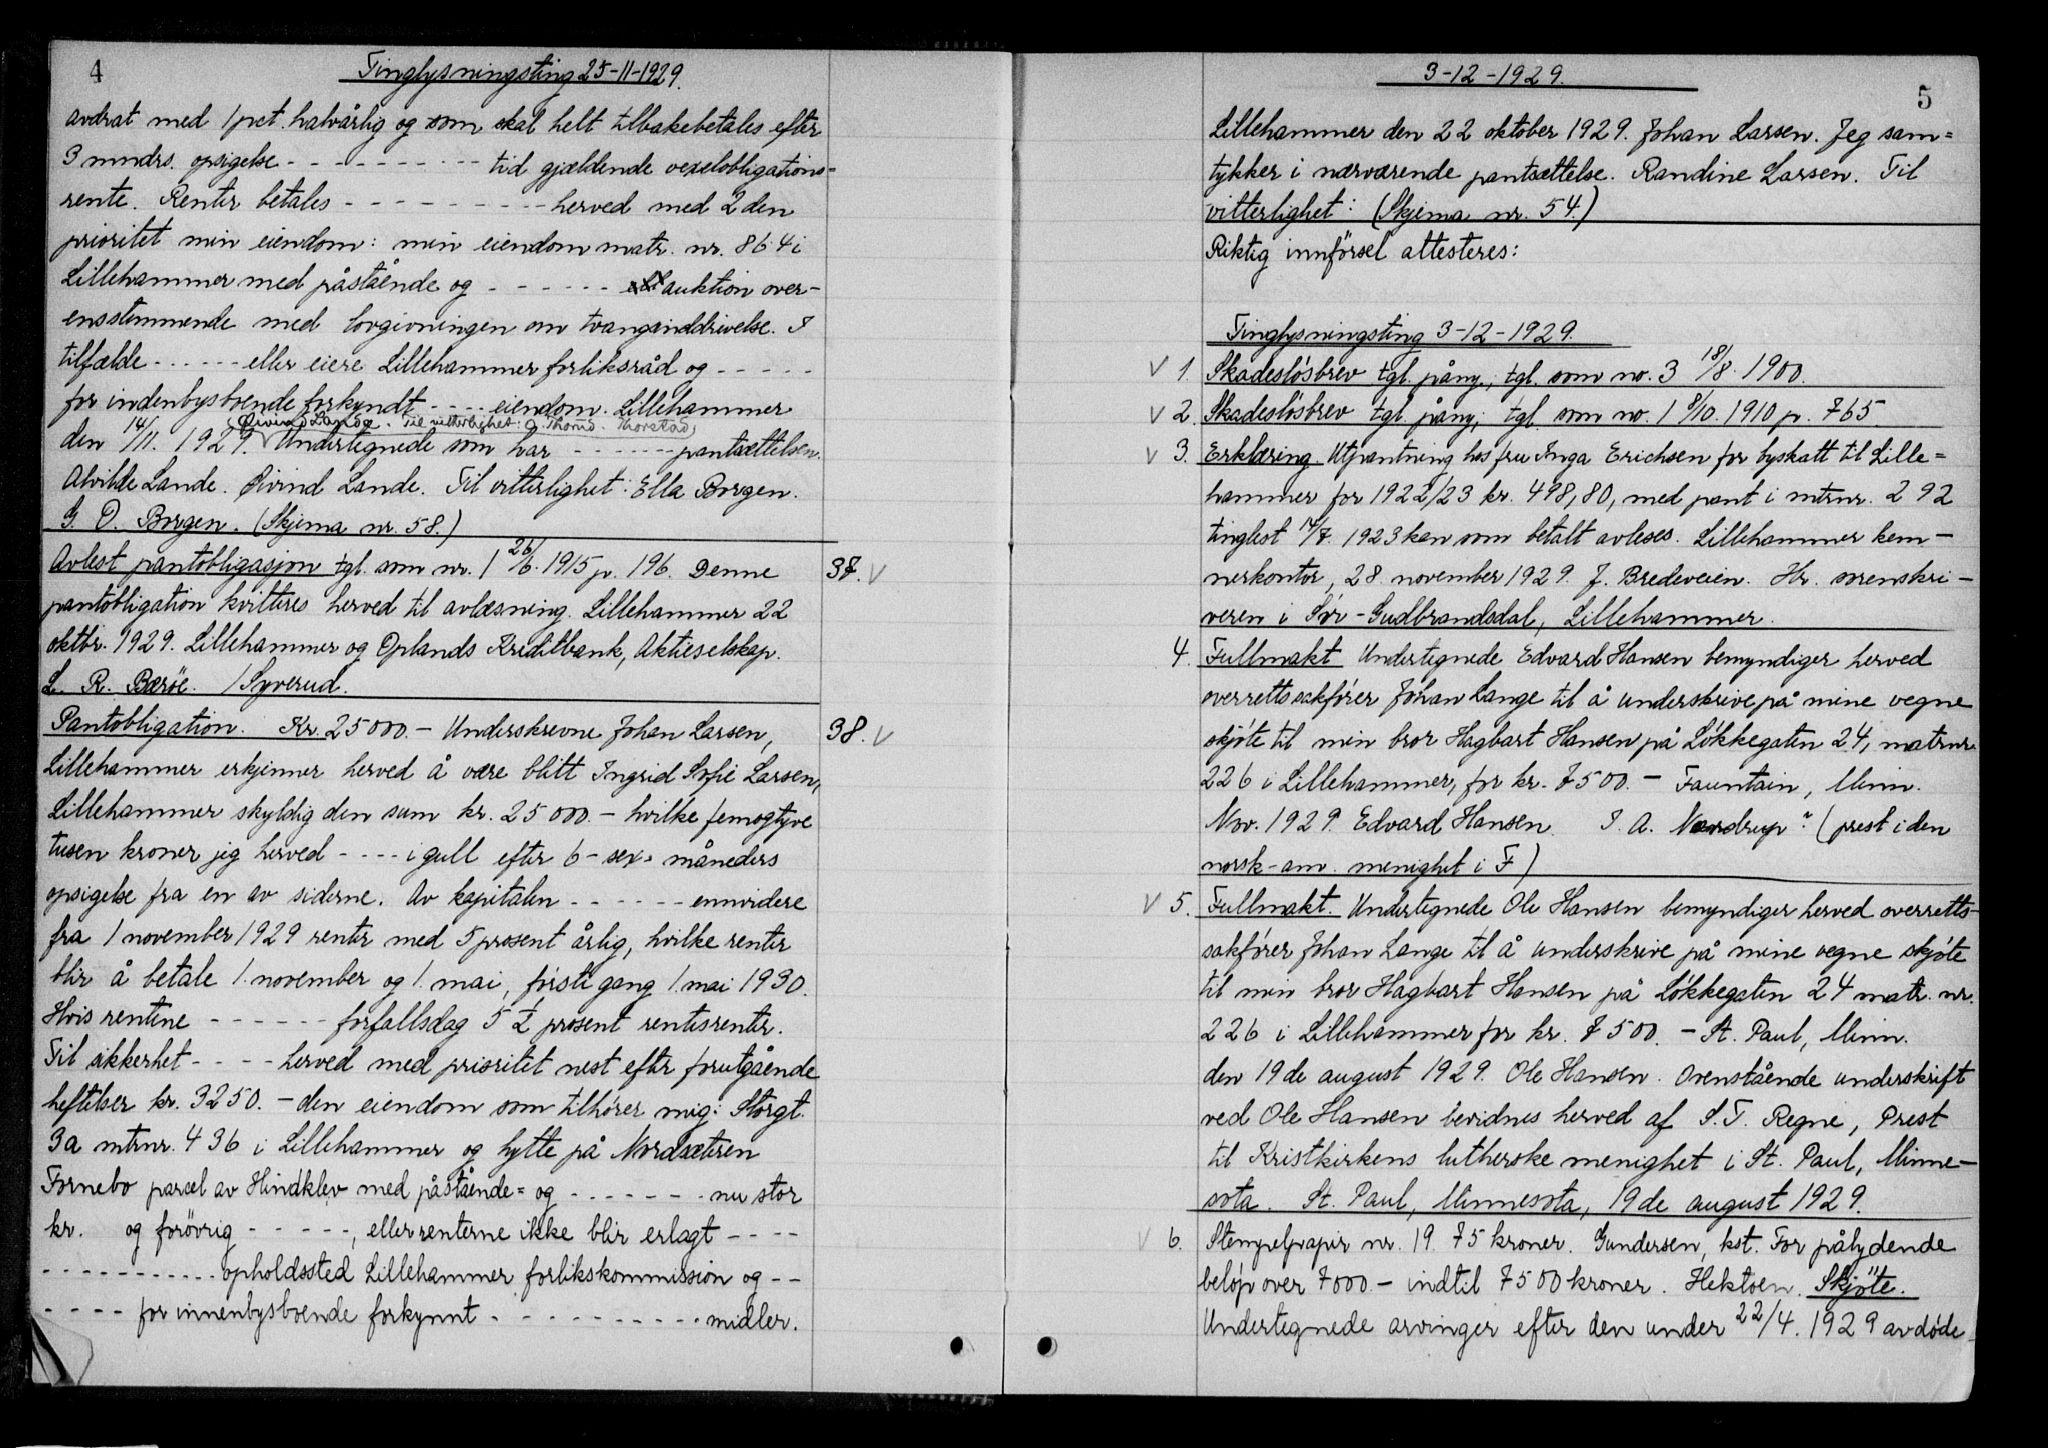 4
Tinglysningsting 25-11-1929.
avdrat med 1 pct. halvårlig og som skal helt tilbakebetales efter
3 mndrs. opsigelse - - - - - - - - - - tid gjældende vexelobligations=
rente. Renter betales - - - - - - - - - - herved med 2den
prioritet min eiendom: min eiendom matr. nr. 86.4 i
Lillehammer med påstående og - - - - - - auktion over-
ensstemmende med lovgivningen om tvangsinddrivelse. I
tilfælde - - - - - eller eiere Lillehammer forliksråd og - - - - -
for indenbysboende forkyndt - - - - eiendom. Lillehammer
(Øivind Lande. Til vitterlighet: Thorstad)
den 14/11. 1929. Undertegnede som har - - - - - - pantsættelsen.
Alvilde Lande. Øivind Lande. Til vitterlighet: Ella Borgen.
G. O. Borgen. (Skjema nr. 58.)
Avlest pantobligasjon tgl. som nr. 1 26/6. 1915 p. 196. Denne 37. V
pantobligation kvitteres herved til avlæsning. Lillehammer 22
oktbr. 1929. Lillehammer og Oplands Kreditbank, Aktieselskap.
L. R. Bærøe. / Syverud.
Pantobligation. Kr. 25000.- Underskrevne Johan Larsen, 38. V
Lillehammer erkjenner herved å være blitt Ingrid Sofie Larsen,
Lillehammer skyldig den sum kr. 25000.- hvilke femogtyve
tusen kroner jeg herved - - - - i gull efter 6 - sex - måneders
opsigelse fra en av siderne. Av kapitalen - - - - - - ennvidere
fra 1 november 1929 renter med 5 prosent årlig, hvilke renter
blir å betale 1. november og 1. mai, første gang 1. mai 1930.
Hvis rentene - - - - - - forfallsdag 5 1/2 prosent rentesrenter.
Til sikkerhet - - - - herved med prioritet nest efter forutgående
heftelser kr. 3250.- den eiendom som tilhører mig: Storgt.
3a mtrnr. 436 i Lillehammer og hytte på Nordsæteren
Fornebo parsel av Hindklev med påstående= og - - - - - - - nu stor
kr. og forövrig - - - - -, eller renterne ikke blir erlagt - - - -
- - - - - - - - - - - opholdssted Lillehammer forlikskommission og - -
- - - - for innenbysboende forkynnt - - - - - - - - - - - midler.
3-12-1929.
5
Lillehammer den 22 oktober 1929. Johan Larsen. Jeg sam=
tykker i nærværende pantsættelse. Randine Larsen. Til
vitterlighet: (Skjema nr. 54.)
Riktig innførsel attesteres:
Tinglysningsting 3-12-1929.
V 1. Skadesløsbrev tgl. påny, tgl. som no. 3 18/8. 1900.
V 2. Skadesløsbrev tgl. påny, tgl. som no. 1 8/10. 1910 p. 765.
V 3. Erklæring. Utpantning hos fru Inga Erichsen for byskatt til Lille=
hammer for 1922/23 kr. 498,80, med pant i mtrnr. 292
tinglest 14/7. 1923 kan som betalt avleses. Lillehammer kem-
nerkontor, 28. november 1929. J. Bredeveien. Hr. sorenskri-
veren i Sør-Gudbrandsdal, Lillehammer.
4. Fullmakt Undertegnede Edvard Hansen bemyndiger herved
overrettssakfører Johan Lange til å underskrive på mine vegne
skjøte til min bror Hagbart Hansen på Løkkegaten 24, matrnr.
226 i Lillehammer, for kr. 7500.- Fauntain, Minn.
Nov. 1929. Edvard Hansen J. A. Nordrup? (prest i den
norsk-am. menighet i F)
V 5. Fullmakt. Undertegnede Ole Hansen bemyndiger herved overretts-
sakfører Johan Lange til å underskrive på mine vegne skjøte
til min bror Hagbart Hansen på Løkkegaten 24 matr. nr.
226 i Lillehammer for kr. 7500.- St. Paul, Minn.
den 19de august 1929. Ole Hansen. Ovenstående underskrift
ved Ole Hansen bevidnes herved af S. T. Regne, Prest
til Kristkirkens lutherske menighet i St. Paul, Minne-
sota. St. Paul, Minnesota, 19de august 1929.
V 6. Stempelpapir nr. 19. 75 kroner. Gundersen, kst. For pålydende
beløp over 7000.- indtil 7500 kroner. Hektoen. Skjöte.
Undertegnede arvinger efter den under 22/4. 1929 avdøde